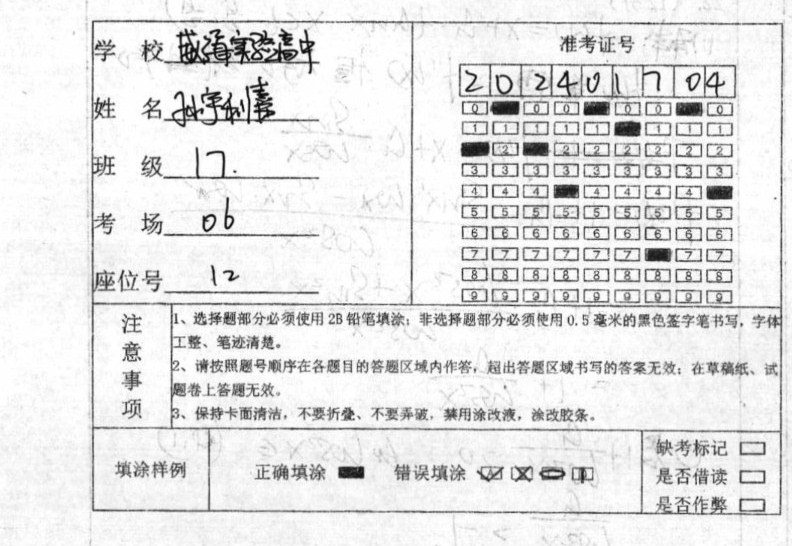 学 校 实验高中
准考证号
2 0 2 4 0 1 7 0 4
姓 名
0 0 0 0 0 0
1 1 1 1 1 1 1 1
班 级 17.
2 2 2 2 2 2 2
3 3 3 3 3 3 3 3 3
4 4 4 4 4 4 4
考 场 06
5 5 5 5 5 5 5 5 5
6 6 6 6 6 6 6 6 6
7 7 7 7 7 7 7 7
座位号 12
8 8 8 8 8 8 8 8 8
9 9 9 9 9 9 9 9 9
注意事项
1、选择题部分必须使用2B铅笔填涂；非选择题部分必须使用0.5毫米的黑色签字笔书写，字体
工整、笔迹清楚。
2、请按照题号顺序在各题目的答题区域内作答，超出答题区域书写的答案无效；在草稿纸、试
题卷上答题无效。
3、保持卡面清洁，不要折叠、不要弄破，禁用涂改液，涂改胶条。
填涂样例 正确填涂 错误填涂
缺考标记
是否借读
是否作弊